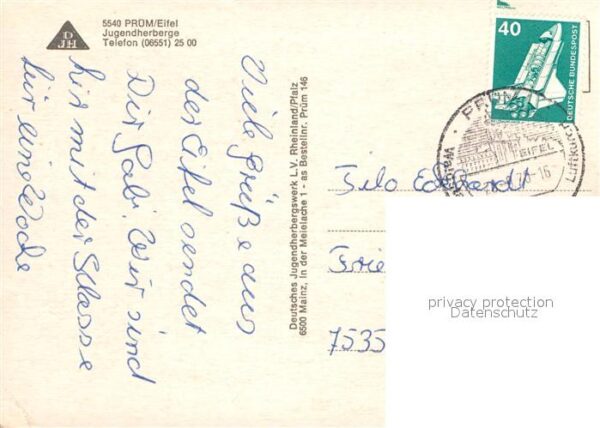 5540 PRÜM/Eifel
Jugendherberge
Telefon (06551) 25 00
DJH
Viele Grüße aus
der Eifel sendet
Dir Gabi. Wir sind
hir mit der Klasse
für eine Woche
Deutsches Jugendherbergswerk L.V. Rheinland/Pfalz
6500 Mainz, In der Meielache 1 - as Bestellnr. Prüm 146
40
DEUTSCHE BUNDESPOST
PRÜM
EIFEL
Luftkur
-16
7535
privacy protection
Datenschutz